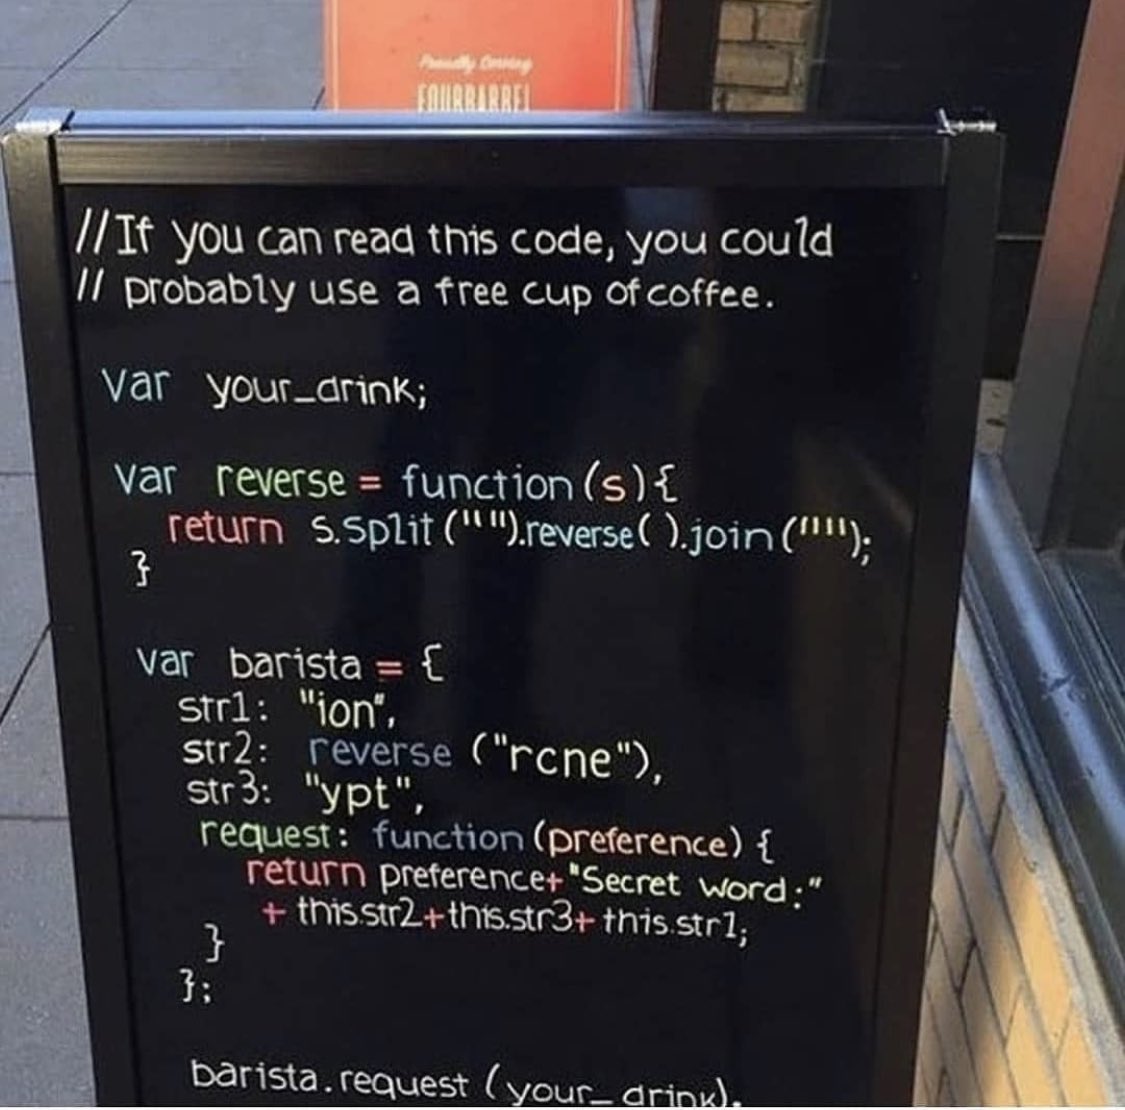 Proudly Serving
FOURBARREL
//If you can read this code, you could
// probably use a free cup of coffee.
var your_drink;
var reverse = function(s){
return s.split("").reverse().join("");
}
var barista = {
str1: "ion",
str2: reverse ("rcne"),
str3: "ypt",
request: function(preference){
return preference+"Secret word:"
+ this.str2+this.str3+this.str1;
}
};
barista.request (your_drink);